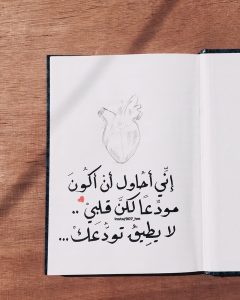 إنّي أحاول أن أكونَ
مودّعًا لكنَّ قلبيْ ..
لا يطيقُ تودّعكْ...